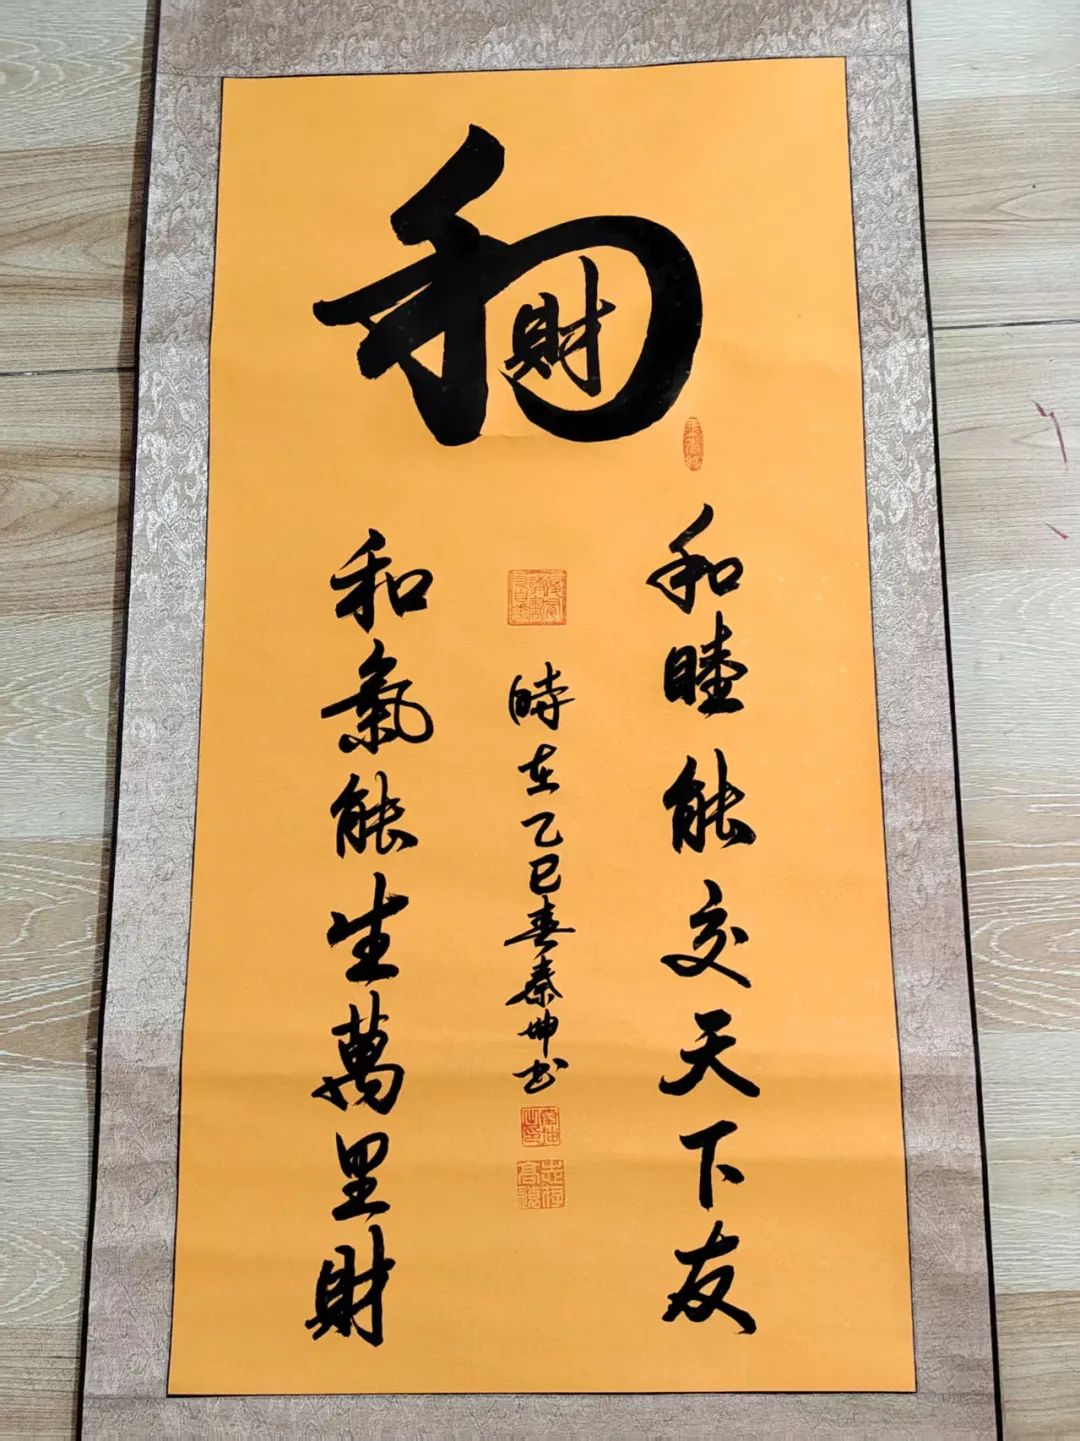 和
財
和睦能交天下友
時在乙巳春秦坤书
和氣能生萬里財